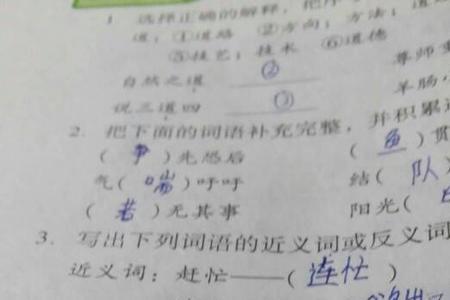 1 选择正确的解释，把序
道：①道路 ②方向；方法；道
⑤技艺；技术 ⑥道德
自然之道 ② 尊师
说三道四 ③ 羊肠
2. 把下面的词语补充完整，并积累
（争）先恐后 （鱼）贯
气（喘）吁吁 结（队
（若）无其事 阳光（
3. 写出下列词语的近义词或反义词
近义词：赶忙——（连忙）